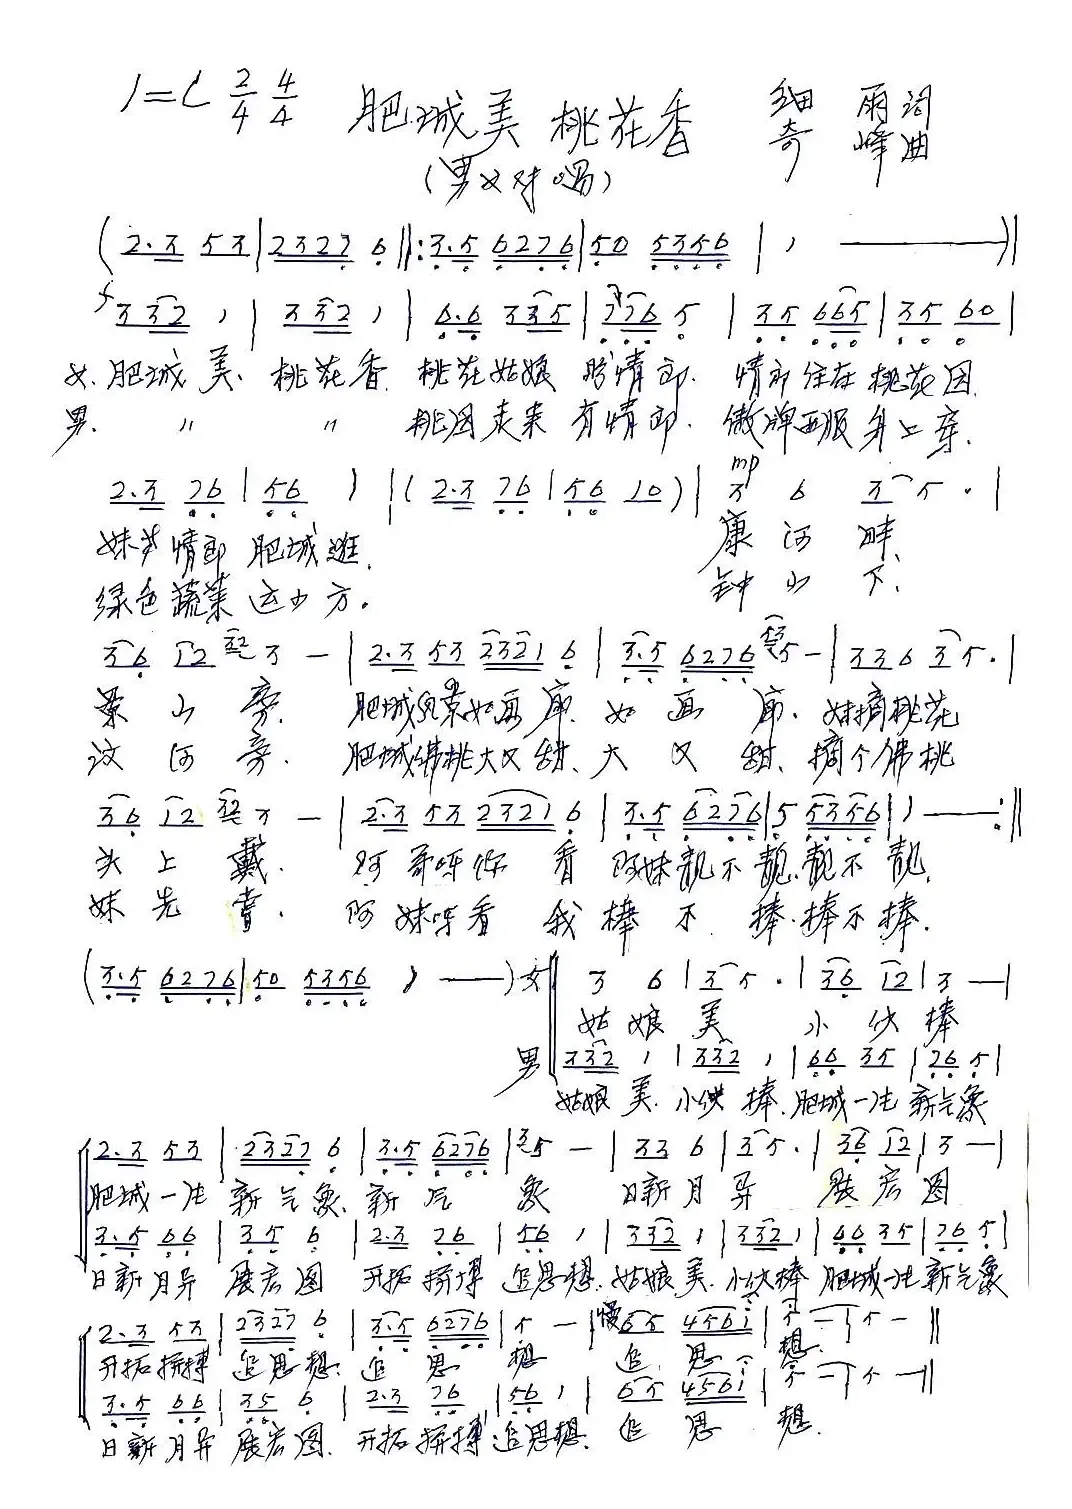 1=C 2/4 4/4 肥城美 桃花香 细 雨 词
奇 峰 曲
(男女对唱)
(2.3 53|2327 6‖:3.5 6276|50 5356|1 ——)‖
f 332 1|332 1|6.6 335|776 5|35 665|35 60|
女. 肥城 美. 桃花香. 桃花姑娘 盼情郎. 情郎住在 桃花园.
男. 〃 〃 桃园走来 有情郎. 傲牌西服 身上穿.
2.3 76|56 1|(2.3 76|56 10)|mp 3 6 3 5.|
妹等情郎 肥城逛. 康河畔、
绿色蔬菜 运四方。 钟山下、
36 12 32 3 —|2.3 53 2321 6|3.5 6276 535 —|336 35.|
景山旁. 肥城风景如画廊. 如画廊. 妹摘桃花
汶河旁. 肥城佛桃大又甜、大又甜、摘个佛桃
36 12 32 3 —|2.3 53 2321 6|3.5 6276|5 5356|1 —:‖
头上戴. 阿哥呀你看 阿妹靓不靓.靓不靓.
妹先尝. 阿妹呀看我棒不棒.棒不棒.
(3.5 6276|50 5356 1 ——) 女 3 6|35.|36 12|3 —|
姑娘美 小伙棒
男 332 1|332 1|66 35|76 5|
姑娘美. 小伙棒. 肥城一片新气象
2.3 53|2327 6|3.5 6276|35 —|33 6|35.|36 12|3 —|
肥城一片 新气象. 新气象 日新月异 展宏图
3.5 66|35 6|2.3 76|56 1|332 1|332 1|66 35|76 5|
日新月异 展宏图 开拓拼搏 追思想. 姑娘美. 小伙棒 肥城一片新气象
2.3 53|2327 6|3.5 6276|5 —|慢 65 4561|5 —|5 —‖
开拓拼搏 追思想. 追思想 追思想.
3.5 66|35 6|2.3 76|56 1|65 4561|5 —|5 —‖
日新月异 展宏图. 开拓拼搏 追思想. 追思想.